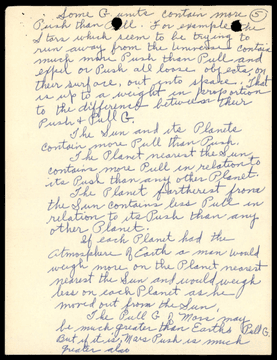 Some G units contain more (5)
Push than Pull. For example the
Stars which seem to be trying to
run away from the Universe contain
much more Push than Pull and
expel or Push all loose objects, on
their surface, out into space. That
is up to a weight in proportion
to the difference between their
Push & Pull G.
The Sun and its Planets
contain more Pull than Push.
The Planet nearest the Sun
contains more Pull in relation to
its Push than any other Planet.
The Planet fartherest from
the Sun contains less Pull in
relation to its Push than any
other Planet.
If each Planet had the
Atmosphere of Earth a man would
weigh more on the Planet nearest
nearest the Sun and would weigh
less on each Planet as he
moved out from the Sun.
The Pull G of Mars may
be much greater than Earths Pull G.
But if it is, Mars Push is much
greater also